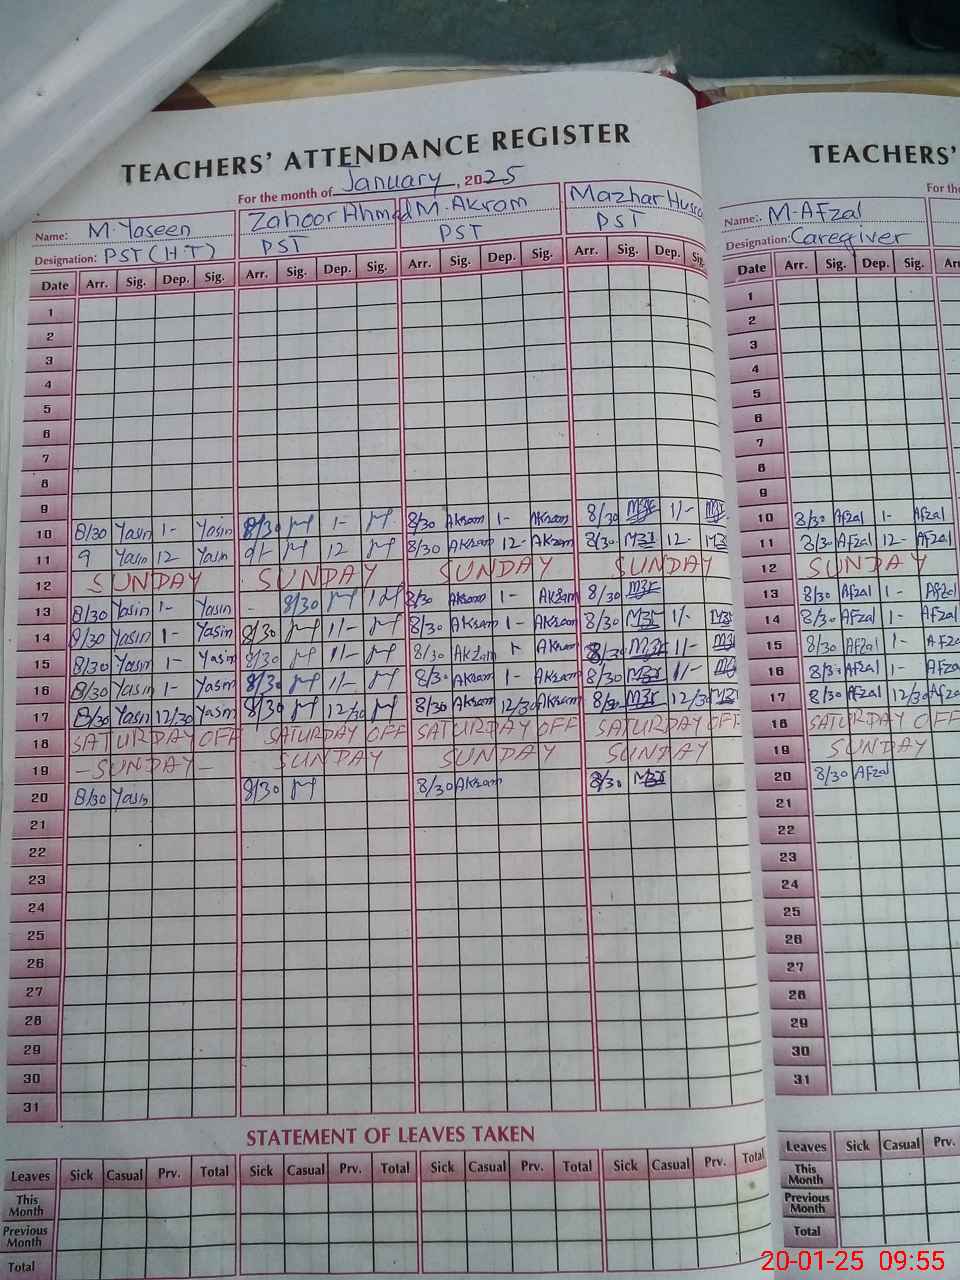 TEACHERS' ATTENDANCE REGISTER
For the month of January, 2025
Name: M. Yaseen Zahoor Ahmad M. Akram Mazhar
Designation: PST (H T) PST PST PST
Date Arr. Sig. Dep. Sig. Arr. Sig. Dep. Sig. Arr. Sig. Dep. Sig. Arr. Sig. Dep. Sig.
1
2
3
4
5
6
7
8
9
10 8/30 Yasin 1- Yasin 8/30 1- 8/30 Akram 1- Akram 8/30 1/-
11 9 Yasin 12- Yasin 12 8/30 Akram 12- Akram 8/30 12-
12 SUNDAY SUNDAY SUNDAY SUNDAY
13 8/30 Yasin 1- Yasin - 8/30 8/30 Akram 1- Akram 8/30
14 8/30 Yasin 1- Yasin 8/30 1/- 8/30 Akram 1- Akram 8/30 1/-
15 8/30 Yasin 1- Yasin 8/30 1/- 8/30 Akram Akram 8/30 1/-
16 8/30 Yasin 1- Yasin 8/30 1/- 8/30 Akram 1- Akram 8/30 1/-
17 8/30 Yasin 12/30 Yasin 8/30 12/30 8/30 Akram 12/30 Akram 8/30 12/30
18 SATURDAY OFF SATURDAY OFF SATURDAY OFF SATURDAY OFF
19 - SUNDAY - SUNDAY SUNDAY SUNDAY
20 8/30 Yasin 8/30 8/30 Akram 8/30
21
22
23
24
25
26
27
28
29
30
31
STATEMENT OF LEAVES TAKEN
Leaves Sick Casual Prv. Total Sick Casual Prv. Total Sick Casual Prv. Total Sick Casual Prv. Total
This Month
Previous Month
Total
TEACHERS'
For the
Name: M-Afzal
Designation: Caregiver
Date Arr. Sig. Dep. Sig. Arr
1
2
3
4
5
6
7
8
9
10 8/30 Afzal 1- Afzal
11 8/30 Afzal 12- Afzal
12 SUNDAY
13 8/30 Afzal 1- Afzal
14 8/30 Afzal 1- Afzal
15 8/30 Afzal 1- Afza
16 8/30 Afzal 1- Afza
17 8/30 Afzal 12/30 Afza
18 SATURDAY OFF
19 SUNDAY
20 8/30 Afzal
21
22
23
24
25
26
27
28
29
30
31
Leaves Sick Casual Prv.
This Month
Previous Month
Total
20-01-25 09:55